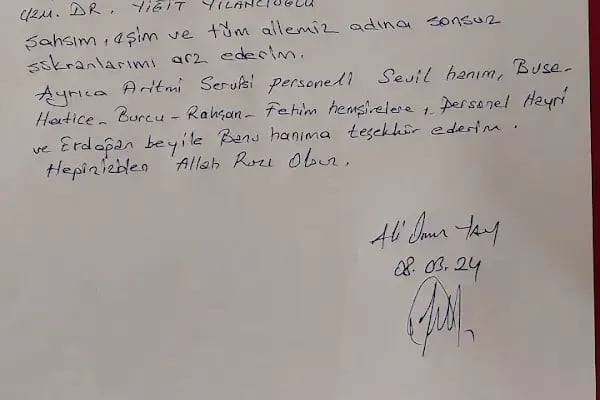 Uzm. DR. YİĞİT YILANCIOĞLU
şahsım, eşim ve tüm ailemiz adına sonsuz
şükranlarımı arz ederim.
Ayrıca Aritmi Servisi personeli Sevil hanım, Buse-
Hatice- Burcu- Rahşan- Fehim hemşirelere, Personel Hayri
ve Erdoğan beyile Banu hanıma teşekkür ederim.
Hepinizden Allah Razı Olsun.
Ali
08.03.24